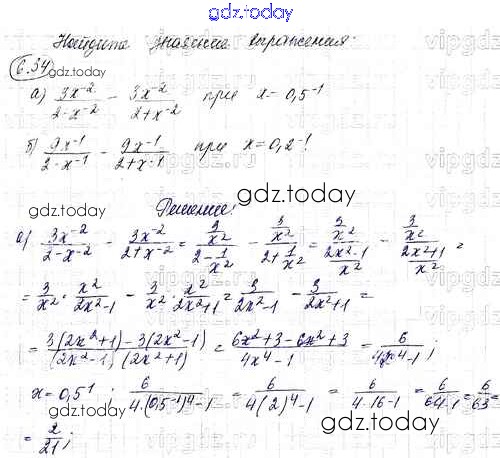 Найдите значение выражения:
6.34 gdz.today
а) 3x⁻²/(2-x⁻²) - 3x⁻²/(2+x⁻²) при x=0,5⁻¹
б) 9x⁻¹/(2-x⁻¹) - 9x⁻¹/(2+x⁻¹) при x=0,2⁻¹
gdz.today
Решение:
а) 3x⁻²/(2-x⁻²) - 3x⁻²/(2+x⁻²) = (3/x²)/(2-1/x²) - (3/x²)/(2+1/x²) = (3/x²)/((2x²-1)/x²) - (3/x²)/((2x²+1)/x²) =
= 3/x² · x²/(2x²-1) - 3/x² · x²/(2x²+1) = 3/(2x²-1) - 3/(2x²+1) =
= (3(2x²+1)-3(2x²-1))/((2x²-1)(2x²+1)) = (6x²+3-6x²+3)/(4x⁴-1) = 6/(4x⁴-1);
x=0,5⁻¹; 6/(4·(0,5⁻¹)⁴-1) = 6/(4(2)⁴-1) = 6/(4·16-1) = 6/(64-1) = 6/63 =
= 2/21;
gdz.today